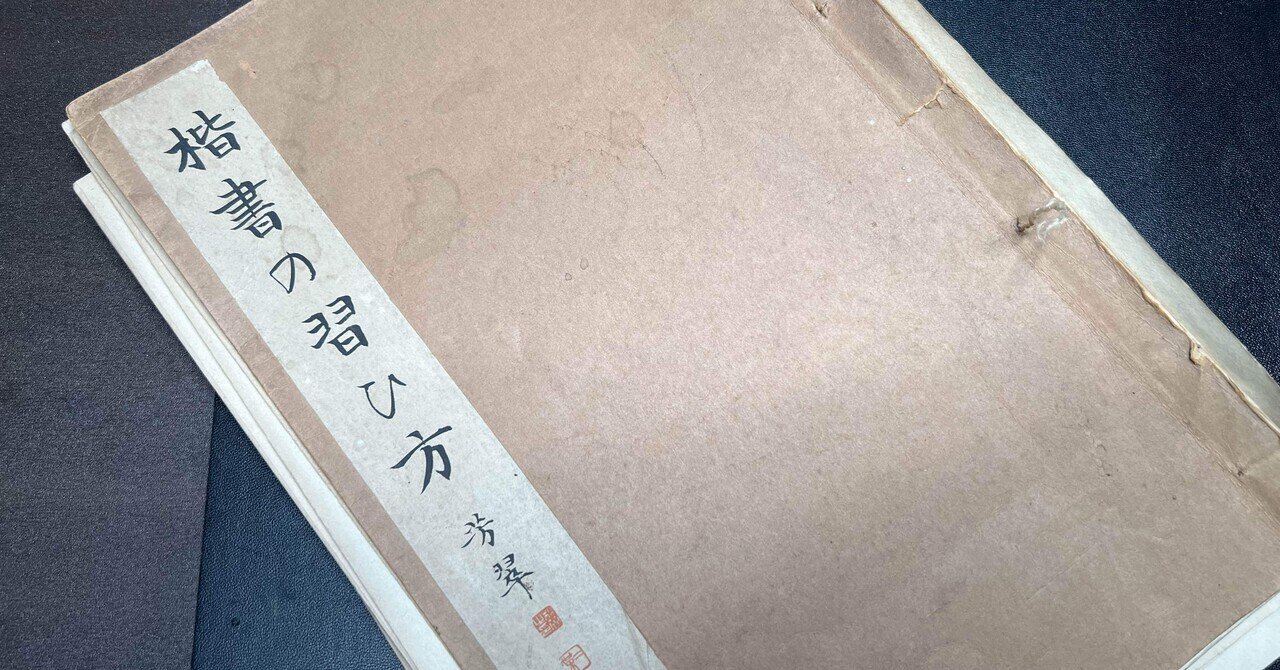 楷書の習ひ方
芳翠